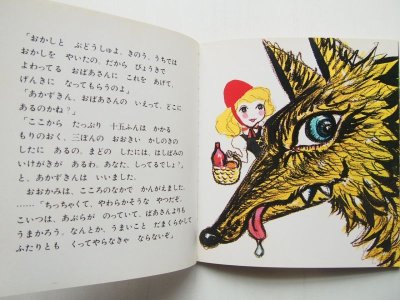 「おかしと ぶどうしゅよ。きのう、うちでは
おかしを やいたの。だから びょうきで
よわってる おばあさんに これを あげて、
げんきに なってもらうのよ」
「あかずきん、おばあさんの いえって、どこに
あるのかね？」
「ここから たっぷり 十五ふんは かかる
もりのおく、三ぼんの おおきい かしのきの
したに あるの。まどの したには、はしばみの
いけがきが あるわ、あなた、しってるでしょ」
と、あかずきんは いいました。
おおかみは、こころのなかで かんがえました。
……「ちっちゃくて、やわらかそうな やつだぞ。
こいつは、あぶらが のっていて、ばあさんよりも
うまかろう。なんとか、うまいこと だまくらかして
ふたりとも くってやらなきゃ ならないぞ」